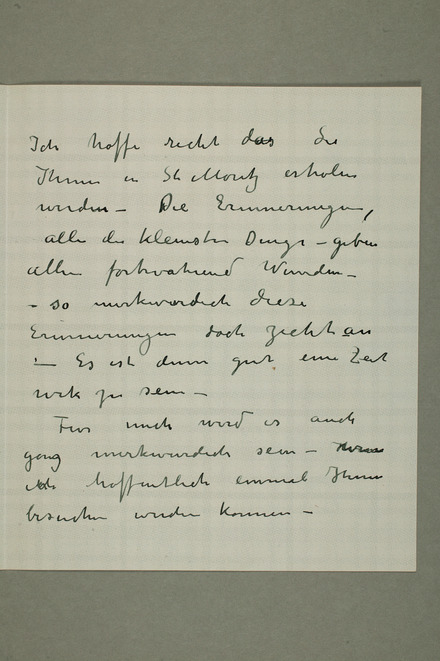 Ich hoffe recht das Sie
Ihnen in St Moritz erholen
werden – Die Erinnerungen,
alle die kleinsten Dinge – geben
allen fortwahrend Wunden –
– so merkwurdich diese
Erinnerungen doch zieht an
– Es ist dann gut eine Zeit
wek zu sein –
Fur mich wird es auch
ganz merkwurdich sein –
hoffentlich einmal Ihnen
besuchen werden konnen –